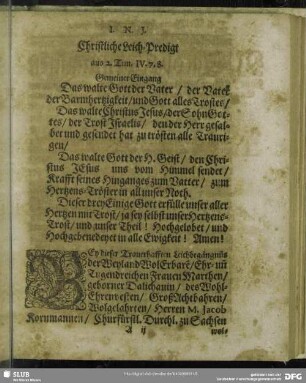 I. N. J.
Christliche Leich-Predigt
aus 2. Tim. IV. 7. 8.
Gemeiner Eingang
Das walte Gott der Vater / der Vater
der Barmhertzigkeit / und Gott alles Trostes /
Das walte Christus Jesus / der Sohn Got-
tes / der Trost Israelis / den der Herr gesal-
bet und gesendet hat zu trösten alle Trauri-
gen /
Das walte Gott der H. Geist / den Chri-
stus JEsus uns vom Himmel sendet /
Krafft seines Hinganges zum Vatter / zum
Hertzens-Tröster in all unser Noth.
Dieser drey Einige Gott erfülle unser aller
Hertzen mit Trost / ja sey selbst unser Hertzens-
Trost / und unser Theil ! Hochgelobet / und
Hochgebenedeyet in alle Ewigkeit ! Amen !
BEy dieser Trauerhafften Leichbegängnüs
der Weyland Wol Erbare / Ehr- und
Tugendreichen Frauen Marthen /
geborner Dalichauin / des Wohl-
Ehrenvesten / GroßAchtbahren /
Wolgelahrten / Herren M. Jacob
Kornmannen / Churfürstl. Durchl. zu Sachsen
A ij
wol-
SLUB
DFG